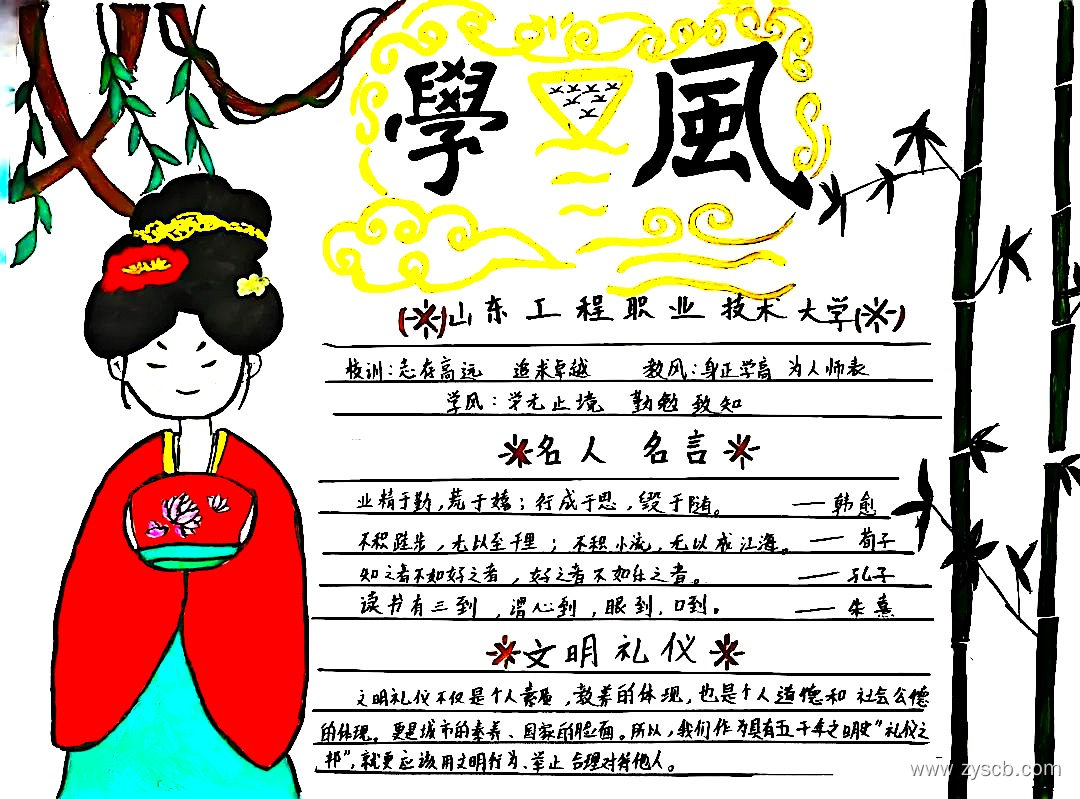 學風
山东工程职业技术大学
校训:志存高远 追求卓越 教风:身正学高 为人师表
学风:学无止境 勤勉致知
名人 名言
业精于勤,荒于嬉;行成于思,毁于随。 ——韩愈
不积跬步,无以至千里;不积小流,无以成江海。 ——荀子
知之者不如好之者,好之者不如乐之者。 ——孔子
读书有三到,谓心到,眼到,口到。 ——朱熹
文明礼仪
文明礼仪不仅是个人素质,教养的体现,也是个人道德和社会公德
的体现。更是城市的素养、国家的脸面。所以,我们作为具有五千年文明史"礼仪之
邦",就更应该用文明行为、举止合理对待他人。
www.zyscb.com